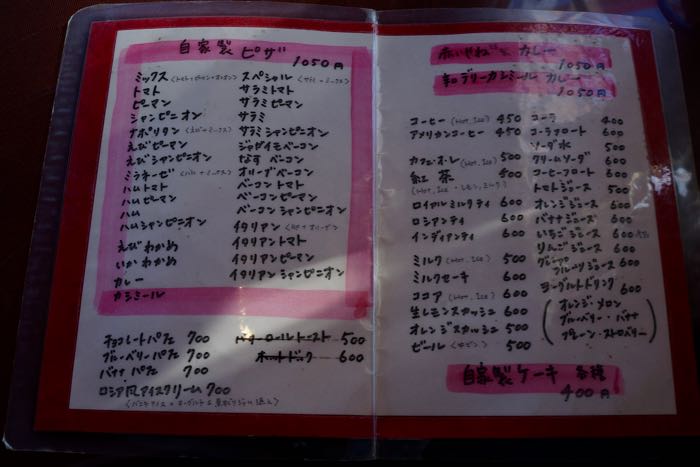 自家製 ピザ
1050円
ミックス(トマト+ピーマン+オニオン)
トマト
ピーマン
シャンピニオン
ナポリタン(えび+ミックス)
えびピーマン
えびシャンピニオン
ミラネーゼ(ハム+ミックス)
ハムトマト
ハムピーマン
ハム
ハムシャンピニオン
えびわかめ
いかわかめ
カレー
カシミール
スペシャル(サラミ+ミックス)
サラミトマト
サラミピーマン
サラミ
サラミシャンピニオン
ジャガイモベーコン
なす ベーコン
オリーブベーコン
ベーコントマト
ベーコンピーマン
ベーコンシャンピニオン
イタリアン
イタリアントマト
イタリアンピーマン
イタリアンシャンピニオン
チョコレートパフェ 700
ブルーベリーパフェ 700
バナナパフェ 700
ロシア風アイスクリーム 700
バターロールトースト 500
ホットドック 600
赤いやねの カレー
1050円
カシミール カレー
1050円
コーヒー(Hot, Ice) 450
アメリカンコーヒー 450
カフェ・オ・レ(Hot, Ice) 500
紅茶 500
(Hot, Ice・レモン,ミルク)
ロイヤルミルクティ 600
ロシアンティ 600
インディアンティ 600
ミルク(Hot, Ice) 500
ミルクセーキ 600
ココア(Hot, Ice) 600
生レモンスカッシュ 600
オレンジスカッシュ 500
ビール 500
コーラ 400
コーラフロート 600
ソーダ水 500
クリームソーダ 600
コーヒーフロート 600
トマトジュース 500
オレンジジュース 600
バナナジュース 600
いちごジュース 600
りんごジュース 600
グレープ
フルーツジュース 600
ヨーグルトドリンク 600
(オレンジ・メロン
ブルーベリー・バナナ
プレーン・ストロベリー)
自家製 ケーキ 各種
400円